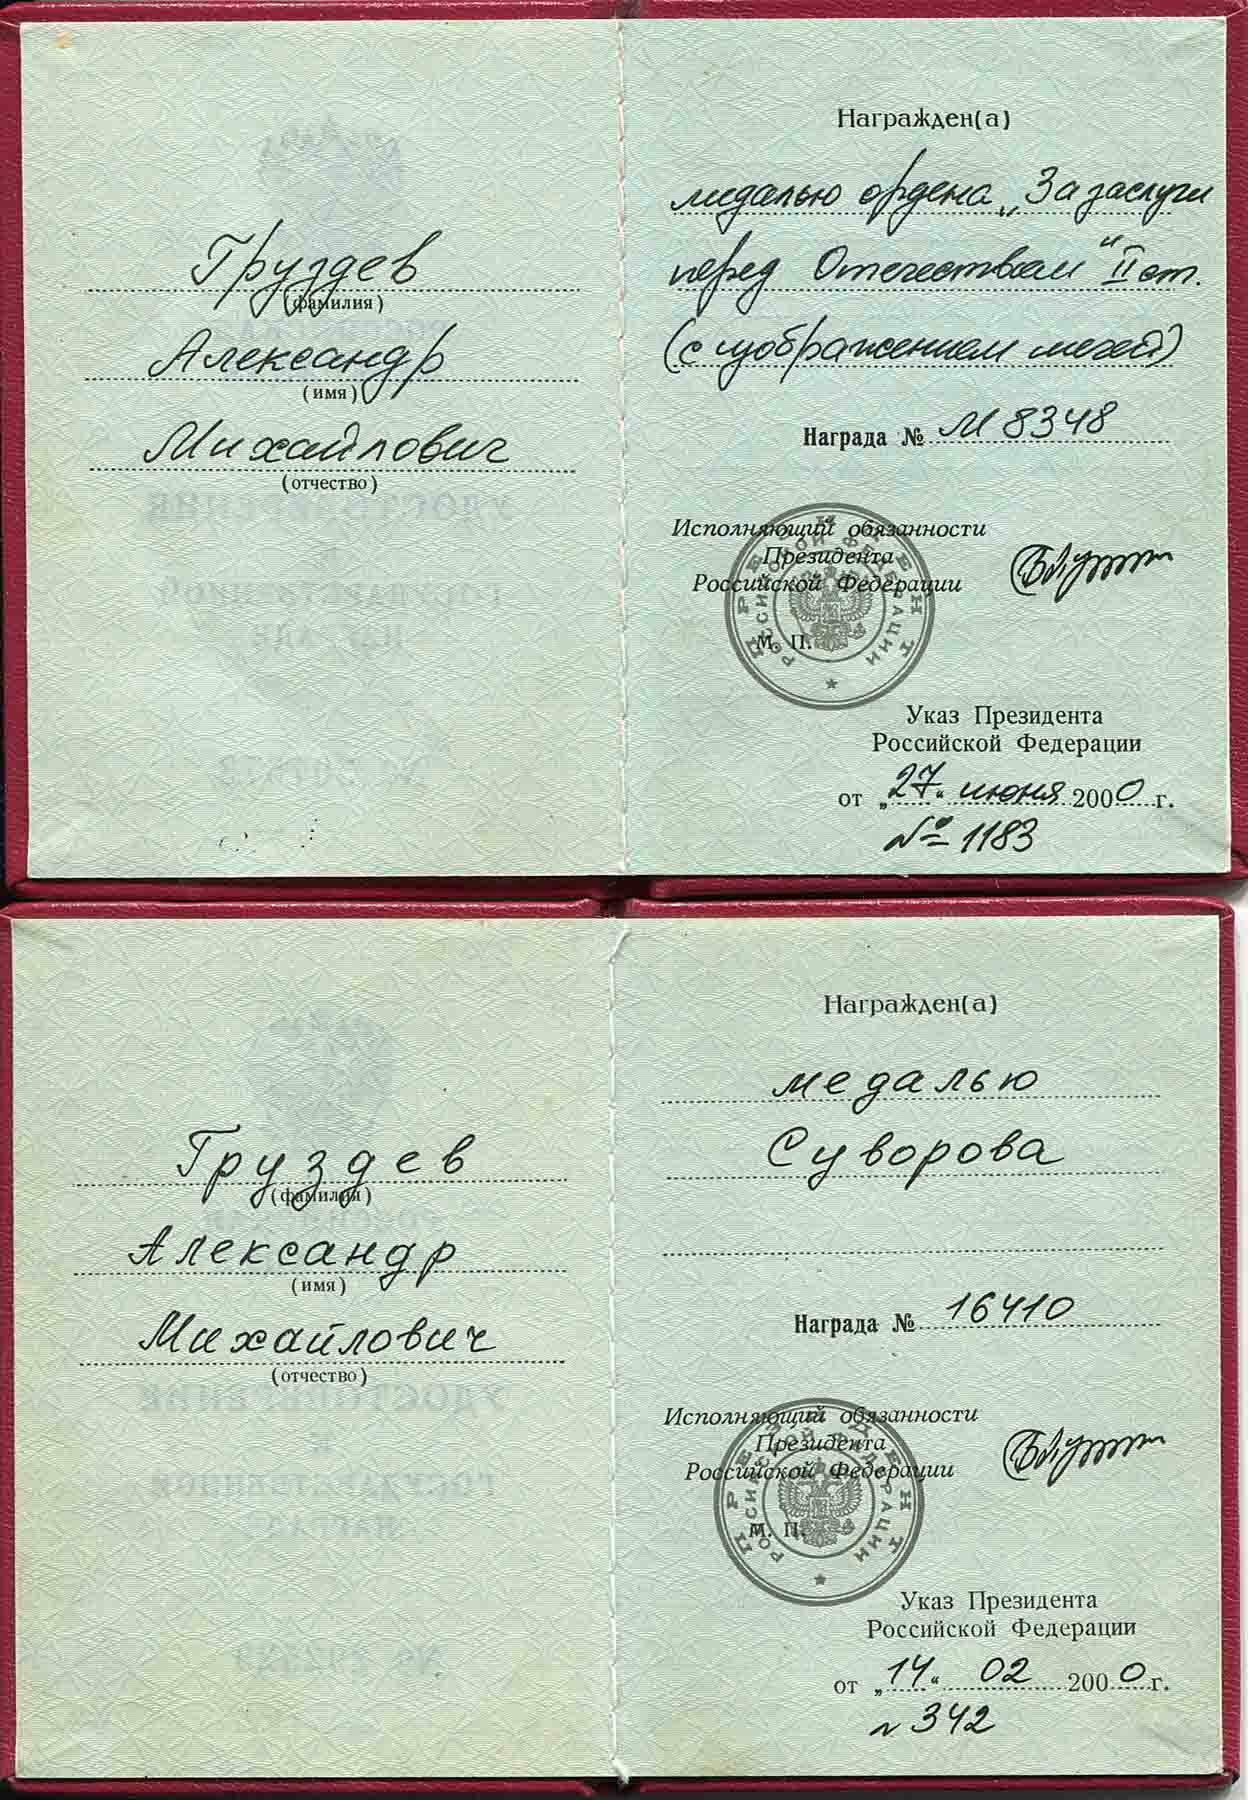 Груздев
(фамилия)
Александр
(имя)
Михайлович
(отчество)
Награжден(а)
медалью ордена „За заслуги
перед Отечеством" II ст.
(с изображением мечей)
Награда № М 8348
Исполняющий обязанности
Президента
Российской Федерации
ПРЕЗИДЕНТ
РОССИЙСКОЙ ФЕДЕРАЦИИ
М. П.
Указ Президента
Российской Федерации
от „27“ июня 2000 г.
№ 1183
Груздев
(фамилия)
Александр
(имя)
Михайлович
(отчество)
Награжден(а)
медалью
Суворова
Награда № 16410
Исполняющий обязанности
Президента
Российской Федерации
ПРЕЗИДЕНТ
РОССИЙСКОЙ ФЕДЕРАЦИИ
М. П.
Указ Президента
Российской Федерации
от „14“ 02 2000 г.
№ 342